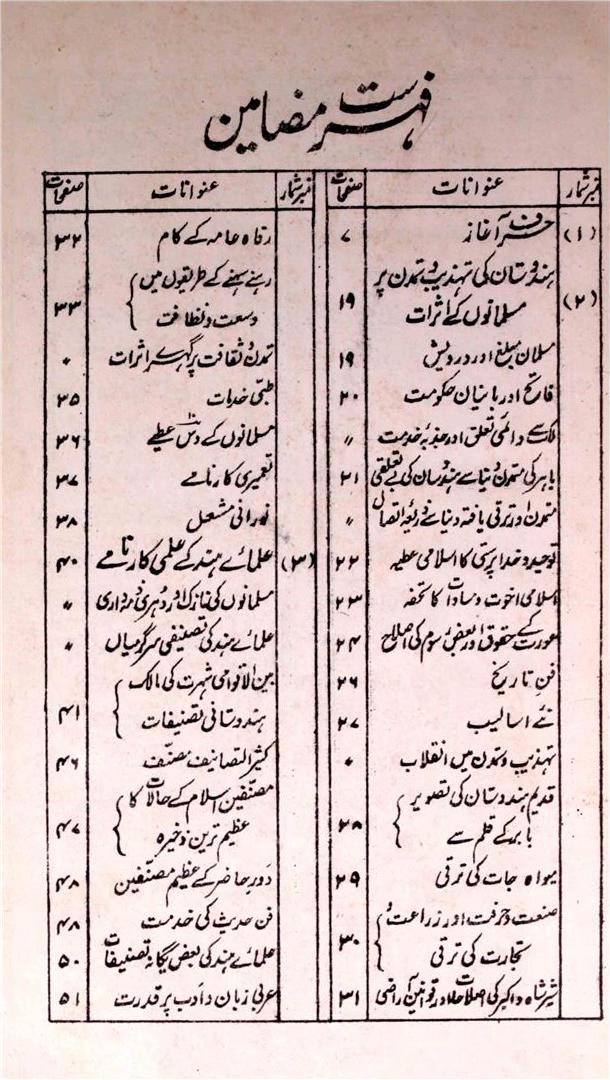 فہرست مضامین
نمبر شمار عنوانات صفحات
(۱) حرف آغاز ۷
(۲) ہندوستان کی تہذیب و تمدن پر
مسلمانوں کے اثرات ۱۹
مسلمان مبلغ اور درویش ۱۹
فاتح اور بانیان حکومت ۲۰
ملک سے دائمی تعلق اور جذبۂ خدمت 〃
باہر کی متمدن دنیا سے ہندوستان کی بے تعلقی ۲۱
متمدن اور ترقی یافتہ دنیا سے ذریعۂ اتصال 〃
توحید و خدا پرستی کا اسلامی عطیہ ۲۲
اسلامی اخوت و مساوات کا تحفہ ۲۳
عورت کے حقوق اور بعض رسوم کی اصلاح ۲۴
فن تاریخ ۲۶
نئے اسالیب ۲۷
تہذیب و تمدن میں انقلاب 〃
قدیم ہندوستان کی تصویر
بابر کے قلم سے ۲۸
میوہ جات کی ترقی ۲۹
صنعت و حرفت اور زراعت و
تجارت کی ترقی ۳۰
شیر شاہ و اکبر کی اصلاحات اور قوانین آراضی ۳۱
نمبر شمار عنوانات صفحات
رفاہ عامہ کے کام ۳۲
رہنے سہنے کے طریقوں میں
وسعت و نظافت ۳۳
تمدن و ثقافت پر گہرے اثرات 〃
طبی خدمات ۳۵
مسلمانوں کے دس۱۰ عطیے ۳۶
تعمیری کارنامے ۳۷
نورانی مشعل ۳۸
(۳) علمائے ہند کے علمی کارنامے ۴۰
مسلمانوں کی نازک اور دوہری ذمہ داری 〃
علمائے ہند کی تصنیفی سرگرمیاں 〃
بین الاقوامی شہرت کی مالک
ہندوستانی تصنیفات ۴۱
کثیر التصانیف مصنف ۴۶
مصنفین اسلام کے حالات کا
عظیم ترین ذخیرہ ۴۷
دور حاضر کے عظیم مصنفین ۴۸
فن حدیث کی خدمت ۴۸
علمائے ہند کی بعض یگانہ تصنیفات ۵۰
عربی زبان و ادب پر قدرت ۵۱